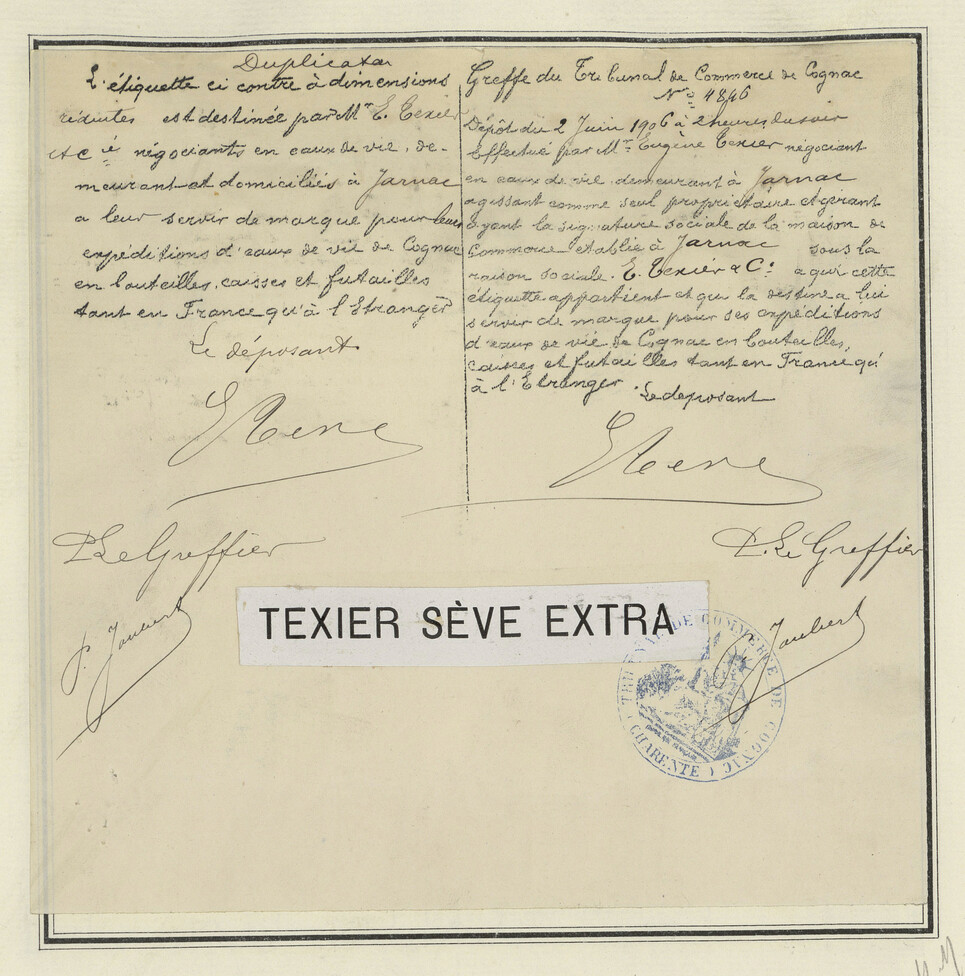 Duplicata
L'étiquette ci contre à dimensions
réduites est destinée par Mr E. Texier
et Cie négociants en eaux de vie, de-
meurant et domiciliés à Jarnac
a leur servir de marque pour leurs
expéditions d'eaux de vie de Cognac
en bouteilles, caisses et futailles
tant en France qu'à l'Etranger
Le déposant
P. Le Greffier
P. Joubert
Greffe du Tribunal de Commerce de Cognac
No 4846
Dépôt du 2 Juin 1906 à 2 heures du soir
effectué par Mr Eugène Texier négociant
en eaux de vie demeurant à Jarnac
agissant comme seul propriétaire et gérant
ayant la signature sociale de la maison de
Commerce établie à Jarnac sous la
raison sociale. E. Texier & Co a qui cette
étiquette appartient et qui la destine a lui
servir de marque pour ses expéditions
d'eaux de vie de Cognac en bouteilles,
caisses et futailles tant en France qu'
à l'Etranger
Le déposant
P. Le Greffier
P. Joubert
TEXIER SÈVE EXTRA
TRIBUNAL DE COMMERCE DE COGNAC
(CHARENTE)